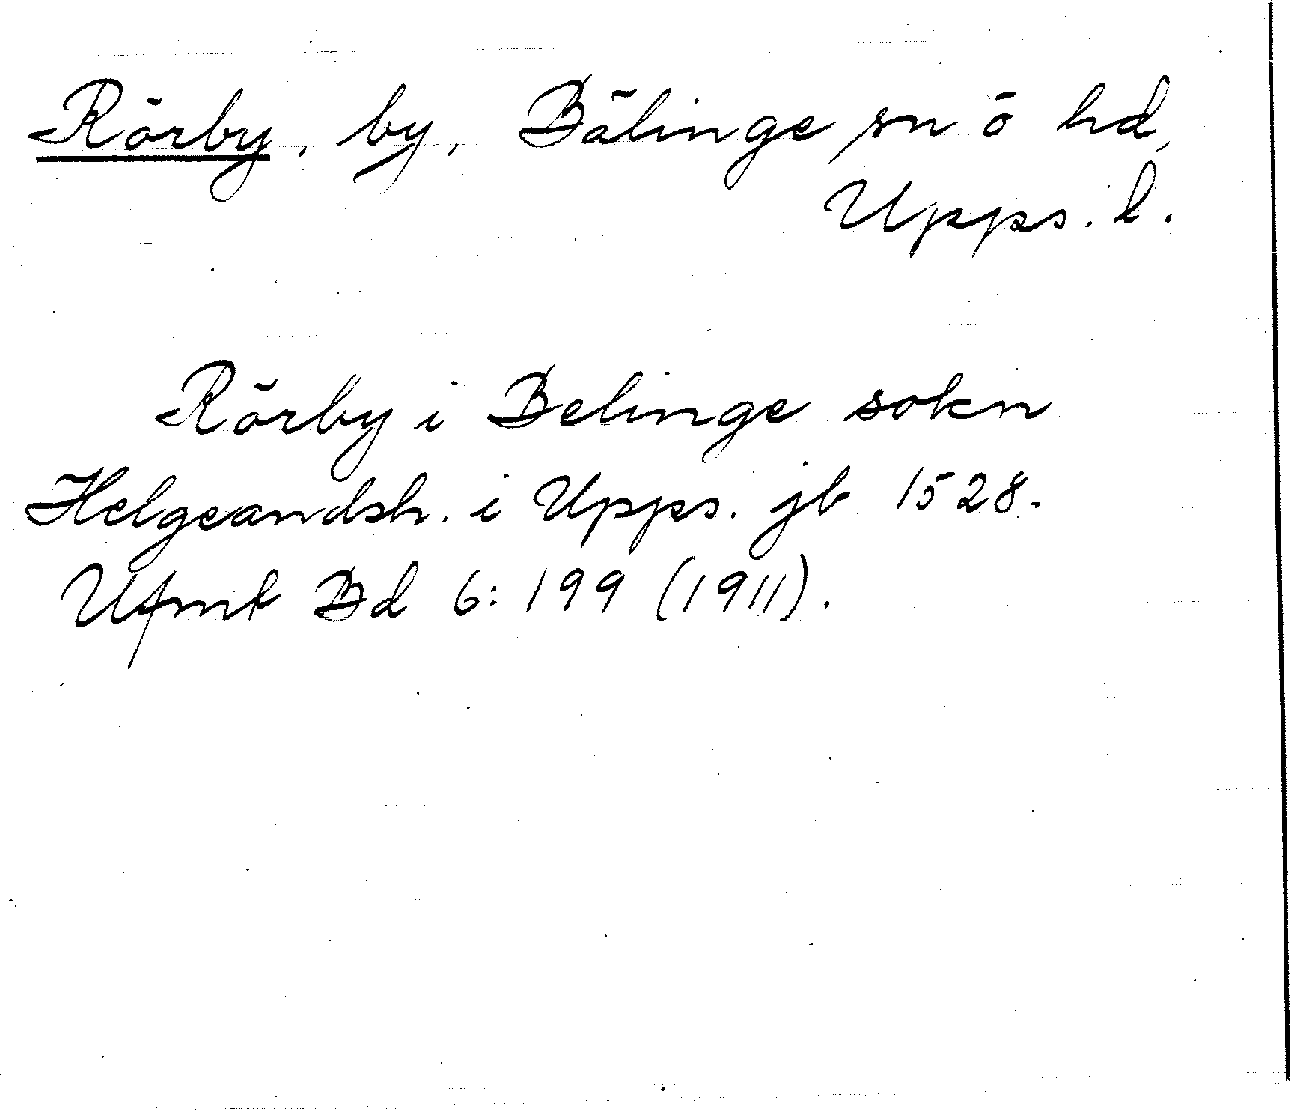 Rörby, by, Bälinge sn o hd,
Upps. l.
Rörby i Belinge sokn
Helgeandsh. i Upps. jb 1528.
Ufmt Bd 6: 199 (1911).